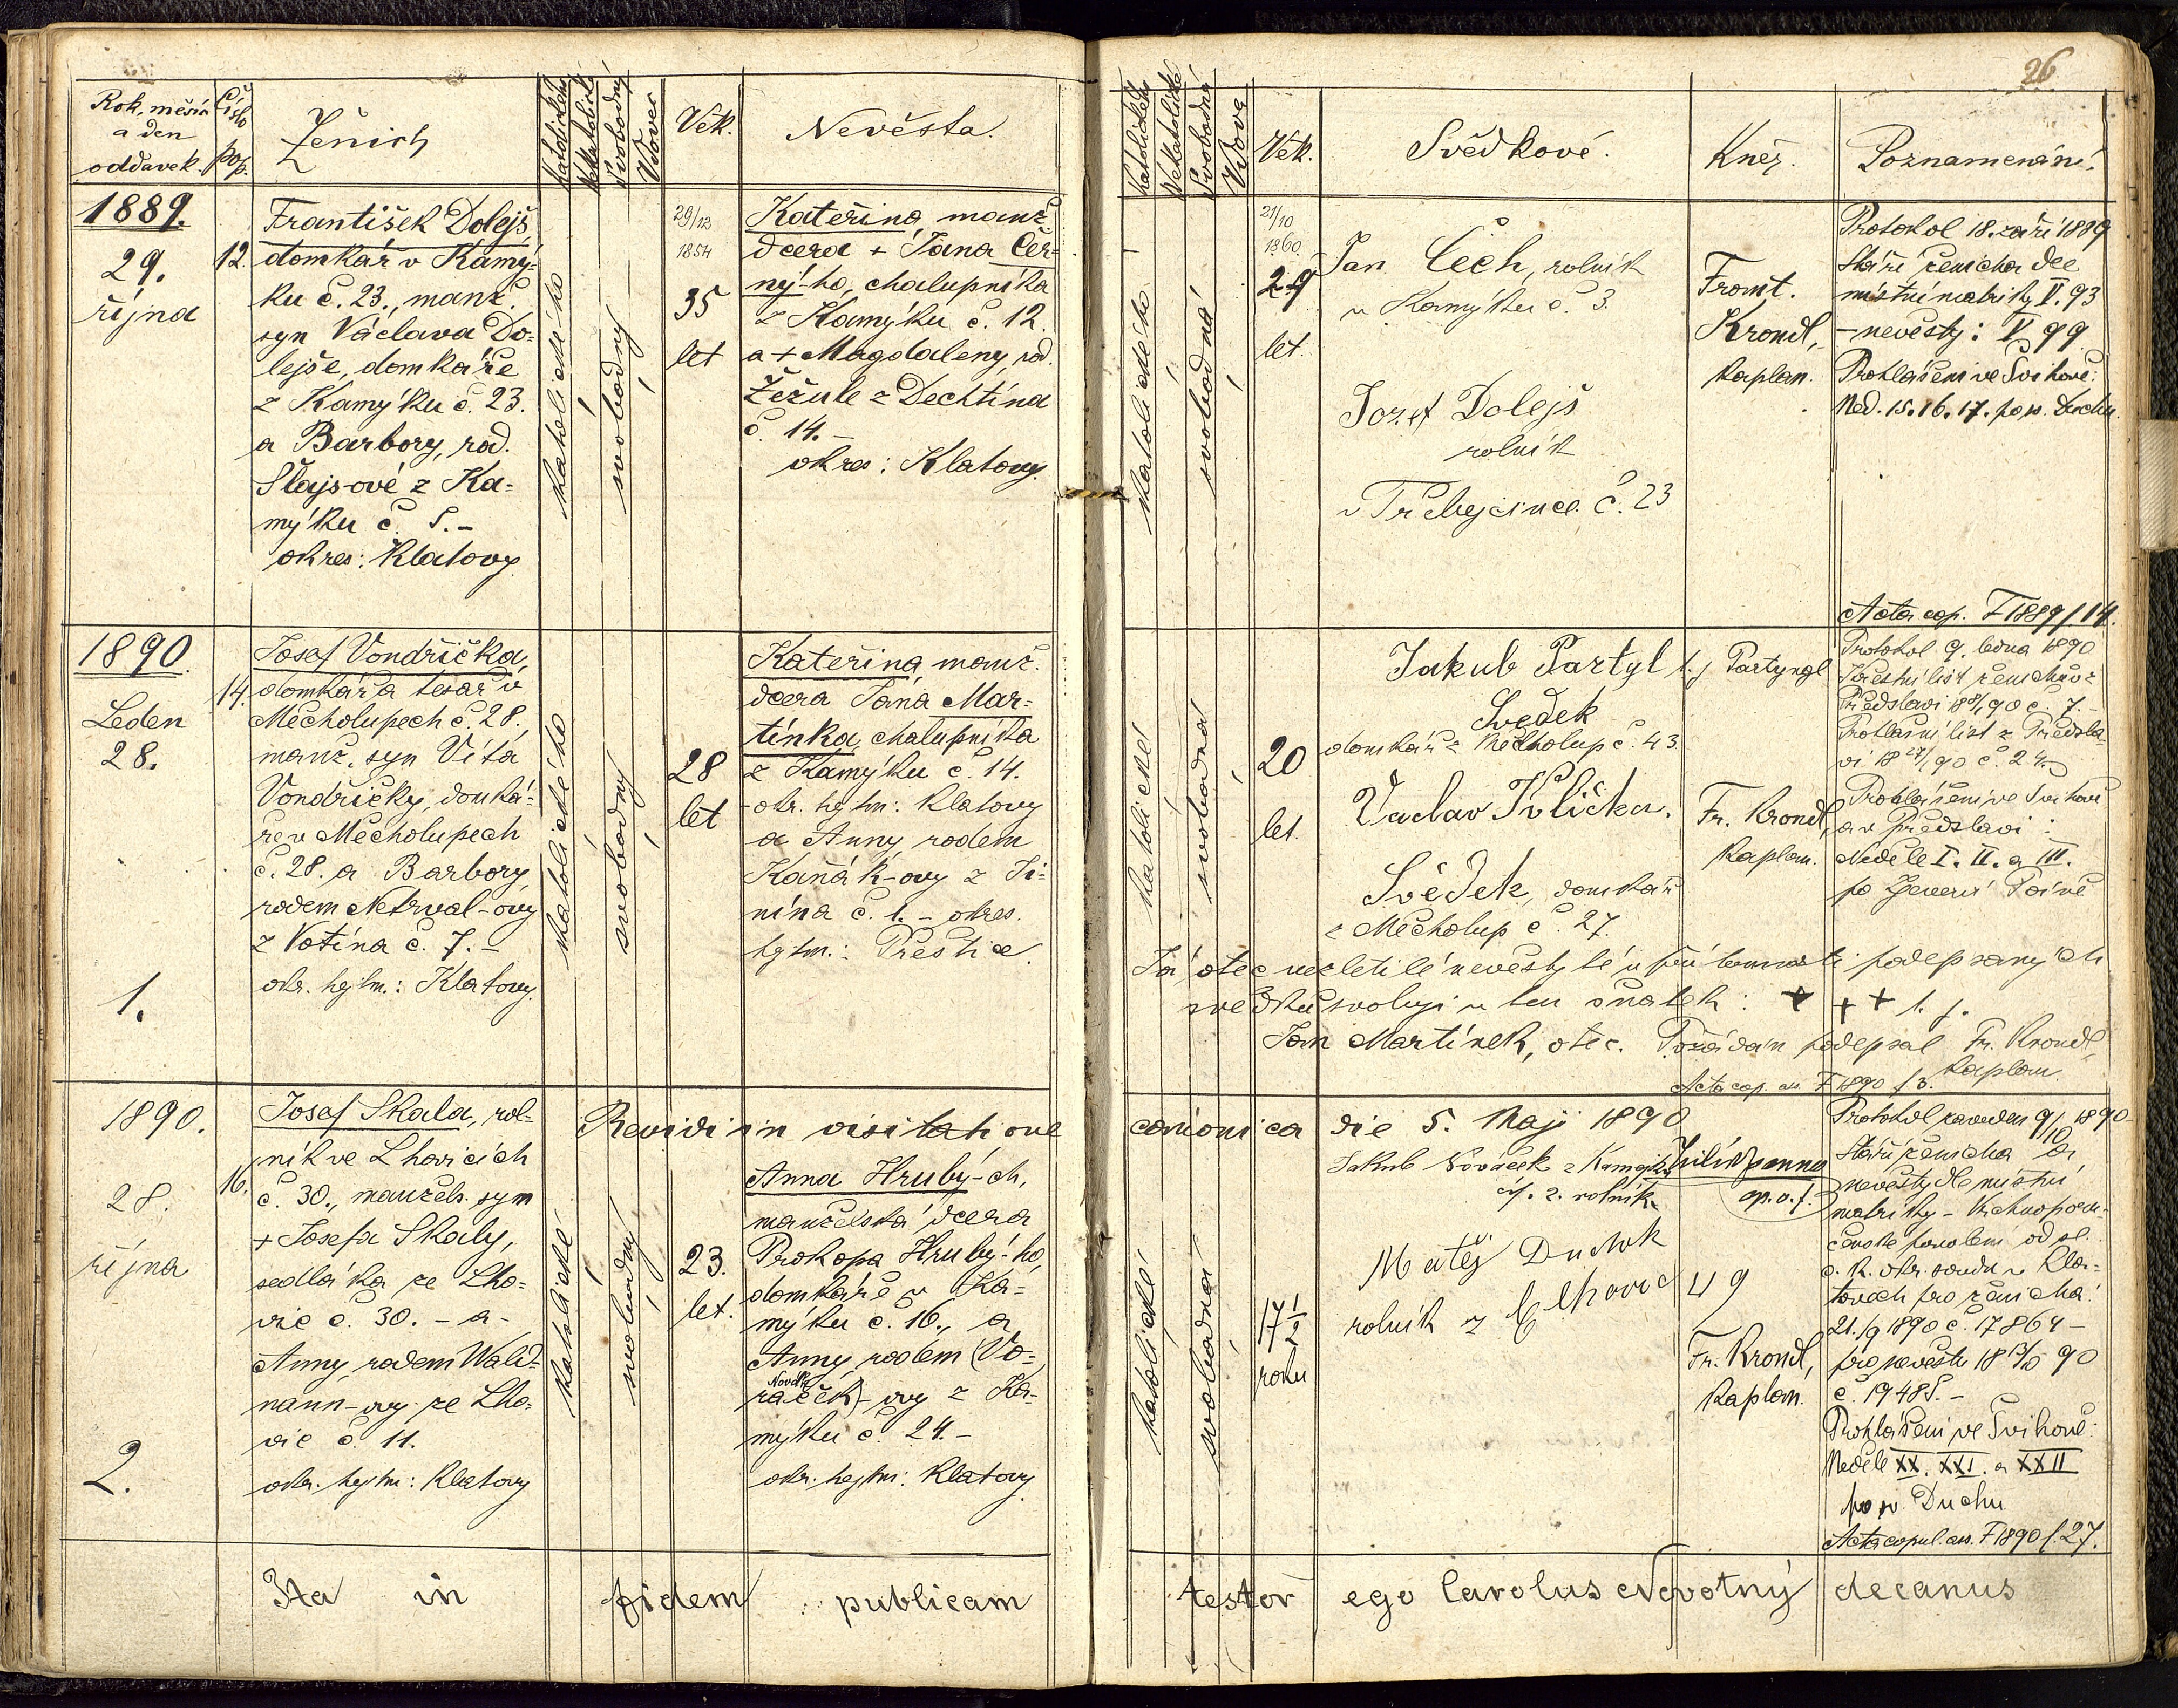 26
Rok, měsíc
a den
oddavek.
Číslo
pop.
Ženich
Katolického
Nekatolického
Svobodný
Vdovec
Věk.
Nevěsta.
Svobodná
Vdova
Věk.
Svědkové.
Kněz.
Poznamenání.
1889.
29.
října
12.
František Dolejš
domkář v Kamý-
ku č. 23., manž.
syn Václava Do-
lejše, domkáře
z Kamýku č. 23.
a Barbory, rod.
Šlajs-ové z Ka-
mýku č. 5.-
okres: Klatovy
katolického
svobodný
29/12
1854
35
let
Kateřina, manž.
dcera + Jana Čer-
ný-ho, chalupníka
z Kamýku č. 12.
a + Magdaleny, rod.
Žežule z Dechtína
č. 14.-
okres: Klatovy.
svobodná
21/10
1860.
29
let.
Jan Čech, rolník
v Kamýku č. 3.
Josef Dolejš
rolník
č. 23
Frant.
Krondl,
kaplan.
Protokol 18. září 1889
Stáří ženicha dle
místní matriky V. 93
- nevěsty: V 99
Prohlášeni ve Švihově:
Ned. 15. 16. 17. po sv. Duchu.
Acta cop. F 1889/14.
1890.
Leden
28.
1.
14.
Josef Vondřička,
domkář a tesař v
Měcholupech č. 28.
manž. syn Víta
Vondřičky, domká-
ře v Měcholupech
č. 28. a Barbory,
rodem Netrval-ovy
z Votína č. 7.-
okr. hejtm.: Klatovy.
katolického
svobodný
28
let
Kateřina manž.
dcera Jana Mar-
tínka, chalupníka
z Kamýku č. 14.
- okr. hejtm: Klatovy
a Anny rodem
Kaňák-ovy z Ji-
nína č. 1. - okres.
hejtm.: Přestice.
katolické
svobodná
20
let.
Jakub Partyl
Svědek
domkář z Měcholup č. 43.
Vaclav
Svědek, domkář
z Měcholup č. 27.
Fr. Krondl,
kaplan.
Protokol 9. ledna 1890
Křestní list ženichův z
Předslavi č. 7.-
Prohlašní list z Předsla-
vi
Prohlášeni ve Švihově
a v Předslavi:
Neděle I. II. a III.
po Zjevení Páně
Já otec nezletilé nevěsty té v přítomnosti podepsaných
svědků svoluji v ten sňatek: + + +
Jan Martínek, otec. Požádán podepsal Fr. Krondl
kaplan
Acta cop. F 1890 f 3.
Revidi in visitatione canonica die 5. Maji 1890
1890.
28.
října
2.
16.
Josef Skala, rol-
ník ve Lhovicích
č. 30., manžels. syn
+ Josefa Skaly,
sedláka ze Lho-
vic č. 30. - a -
Anny, rodem Wald-
mann-ovy ze Lho-
vic č. 11.
okr. hejtm: Klatovy
katolické
svobodný
23.
let.
Anna Hrubý-ch,
manželská dcera
Prokopa Hrubý-ho,
domkáře v Ka-
mýku č. 16., a
Anny, rodem (Vo-
ráček)-ovy z Ka-
mýku č. 24.-
okr. hejtm: Klatovy
katolické
svobodná
17 1/2
roku
Jakub Nováček z Kamýku
čís. 2. rolník
Matěj Dudek
rolník z
Fr. Krondl,
kaplan.
Protokol 9/10 1890
Stáří ženicha a
nevěsty dle místní
matriky -
povolení od sl.
c. k. okr. soudu v Kla-
tovech pro ženicha:
21./9 1890 č. 17864 -
pro nevěstu 18 13/10 90
č. 19485.-
Prohlášeni ve Švihově:
Neděle XX. XXI. a XXII
po sv. Duchu
Acta copul. F 1890 f. 27.
Ita in fidem publicam testor ego Carolus Novotný decanus